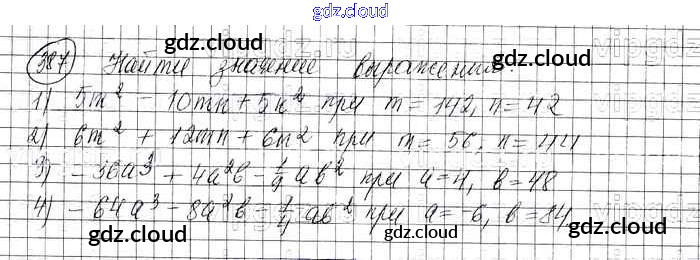 gdz.cloud
387 Найти значение выражения:
gdz.cloud gdz.cloud
1) 5m² - 10mn + 5n² при m = 142, n = 42
2) 6m² + 12mn + 6n² при m = 56, n = 44
gdz.cloud gdz.cloud
3) -36a³ + 4a²b - 1/9 ab² при a=4, b=48
4) -64a³ - 8a²b - 1/4 ab² при a=-6, b=84
gdz.cloud gdz.cloud gdz.cloud